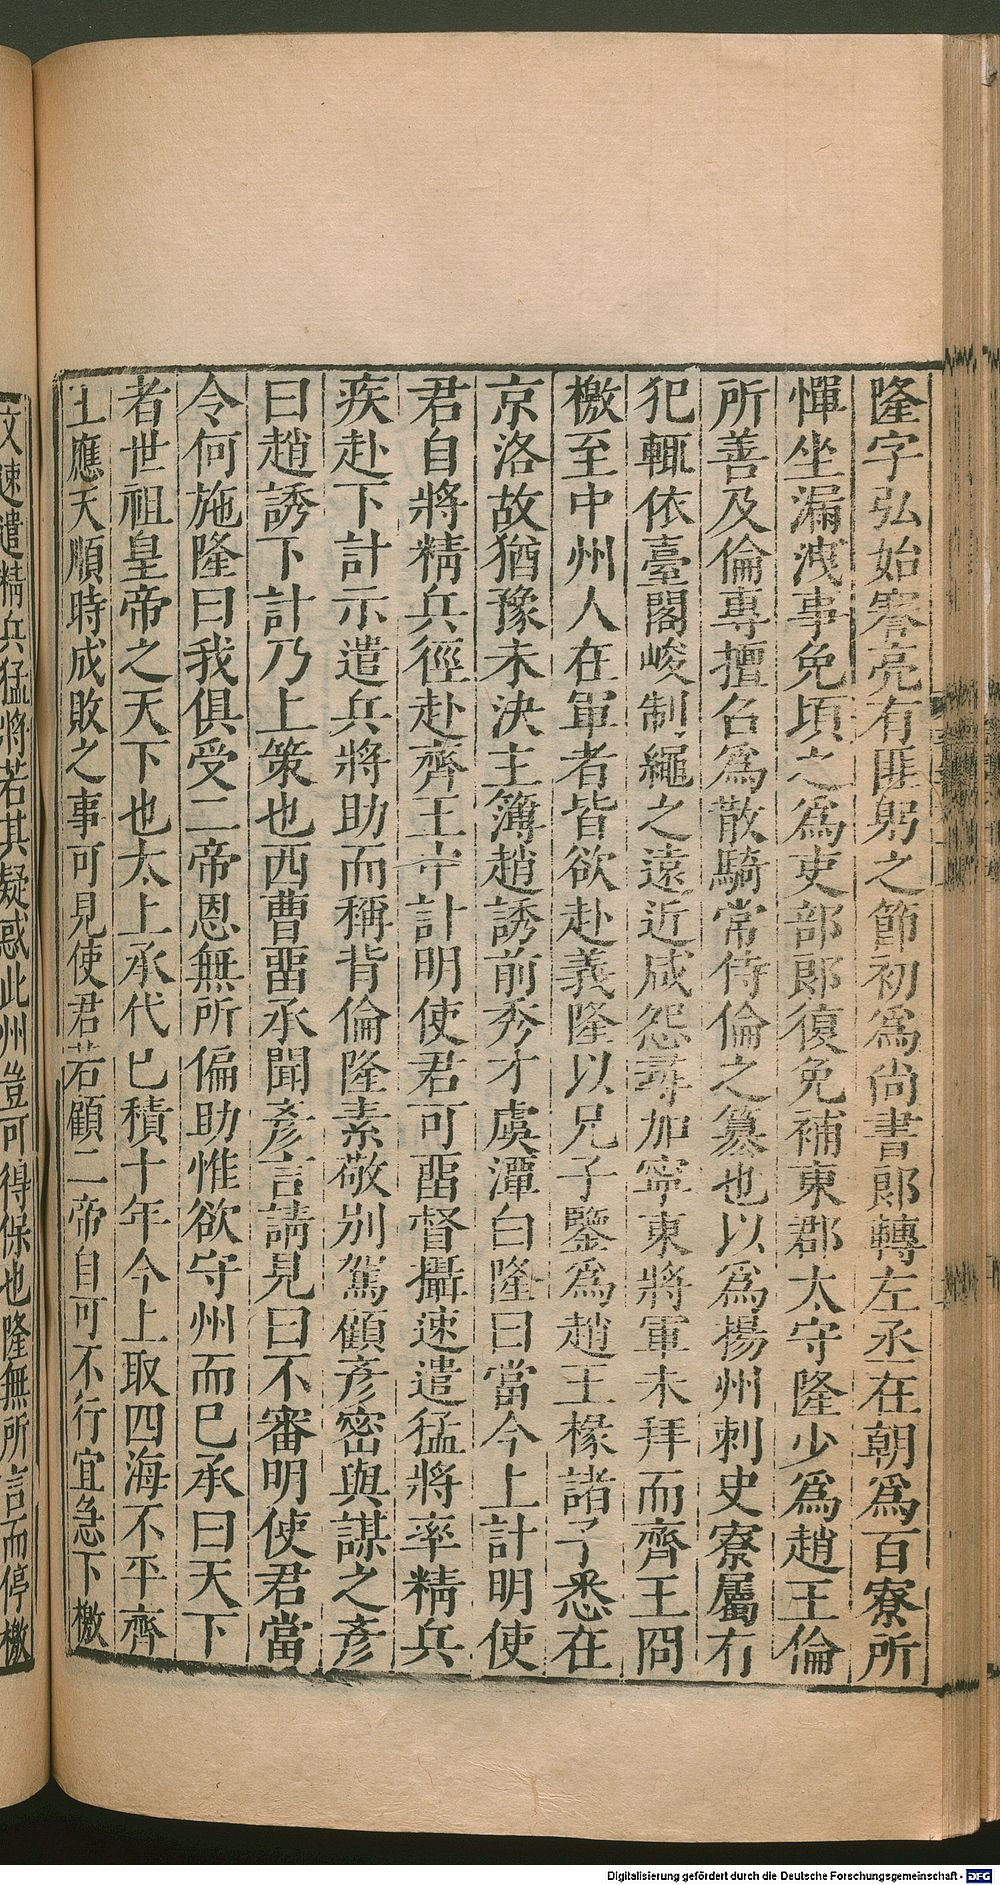 隆字弘始謇亮有匪躬之節初為尚書郞轉左丞在朝為百寮所
憚坐漏洩事免頃之為吏部郞復免補東郡太守隆少為趙王倫
所善及倫專擅名為散騎常侍倫之簒也以為揚州刺史寮屬有
犯輒依臺閣峻制繩之遠近咸怨尋加寧東將軍未拜而齊王冏
檄至中州人在軍者皆欲赴義隆以兄子鑒為趙王掾諸子悉在
京洛故猶豫未決主簿趙誘前秀才虞潭白隆曰當今上計明使
君自將精兵徑赴齊王中計明使君可畱督攝速遣猛將率精兵
疾赴下計示遣兵將助而稱背倫隆素敬別駕顧彥密與謀之彥
曰趙誘下計乃上策也西曹畱承聞彥言請見曰不審明使君當
令何施隆曰我俱受二帝恩無所偏助惟欲守州而已承曰天下
者世祖皇帝之天下也太上承代已積十年今上取四海不平齊
王應天順時成敗之事可見使君若顧二帝自可不行宜急下檄
文速遣精兵猛將若其疑惑此州豈可得保也隆無所言而停檄
Digitalisierung gefördert durch die Deutsche Forschungsgemeinschaft - DFG